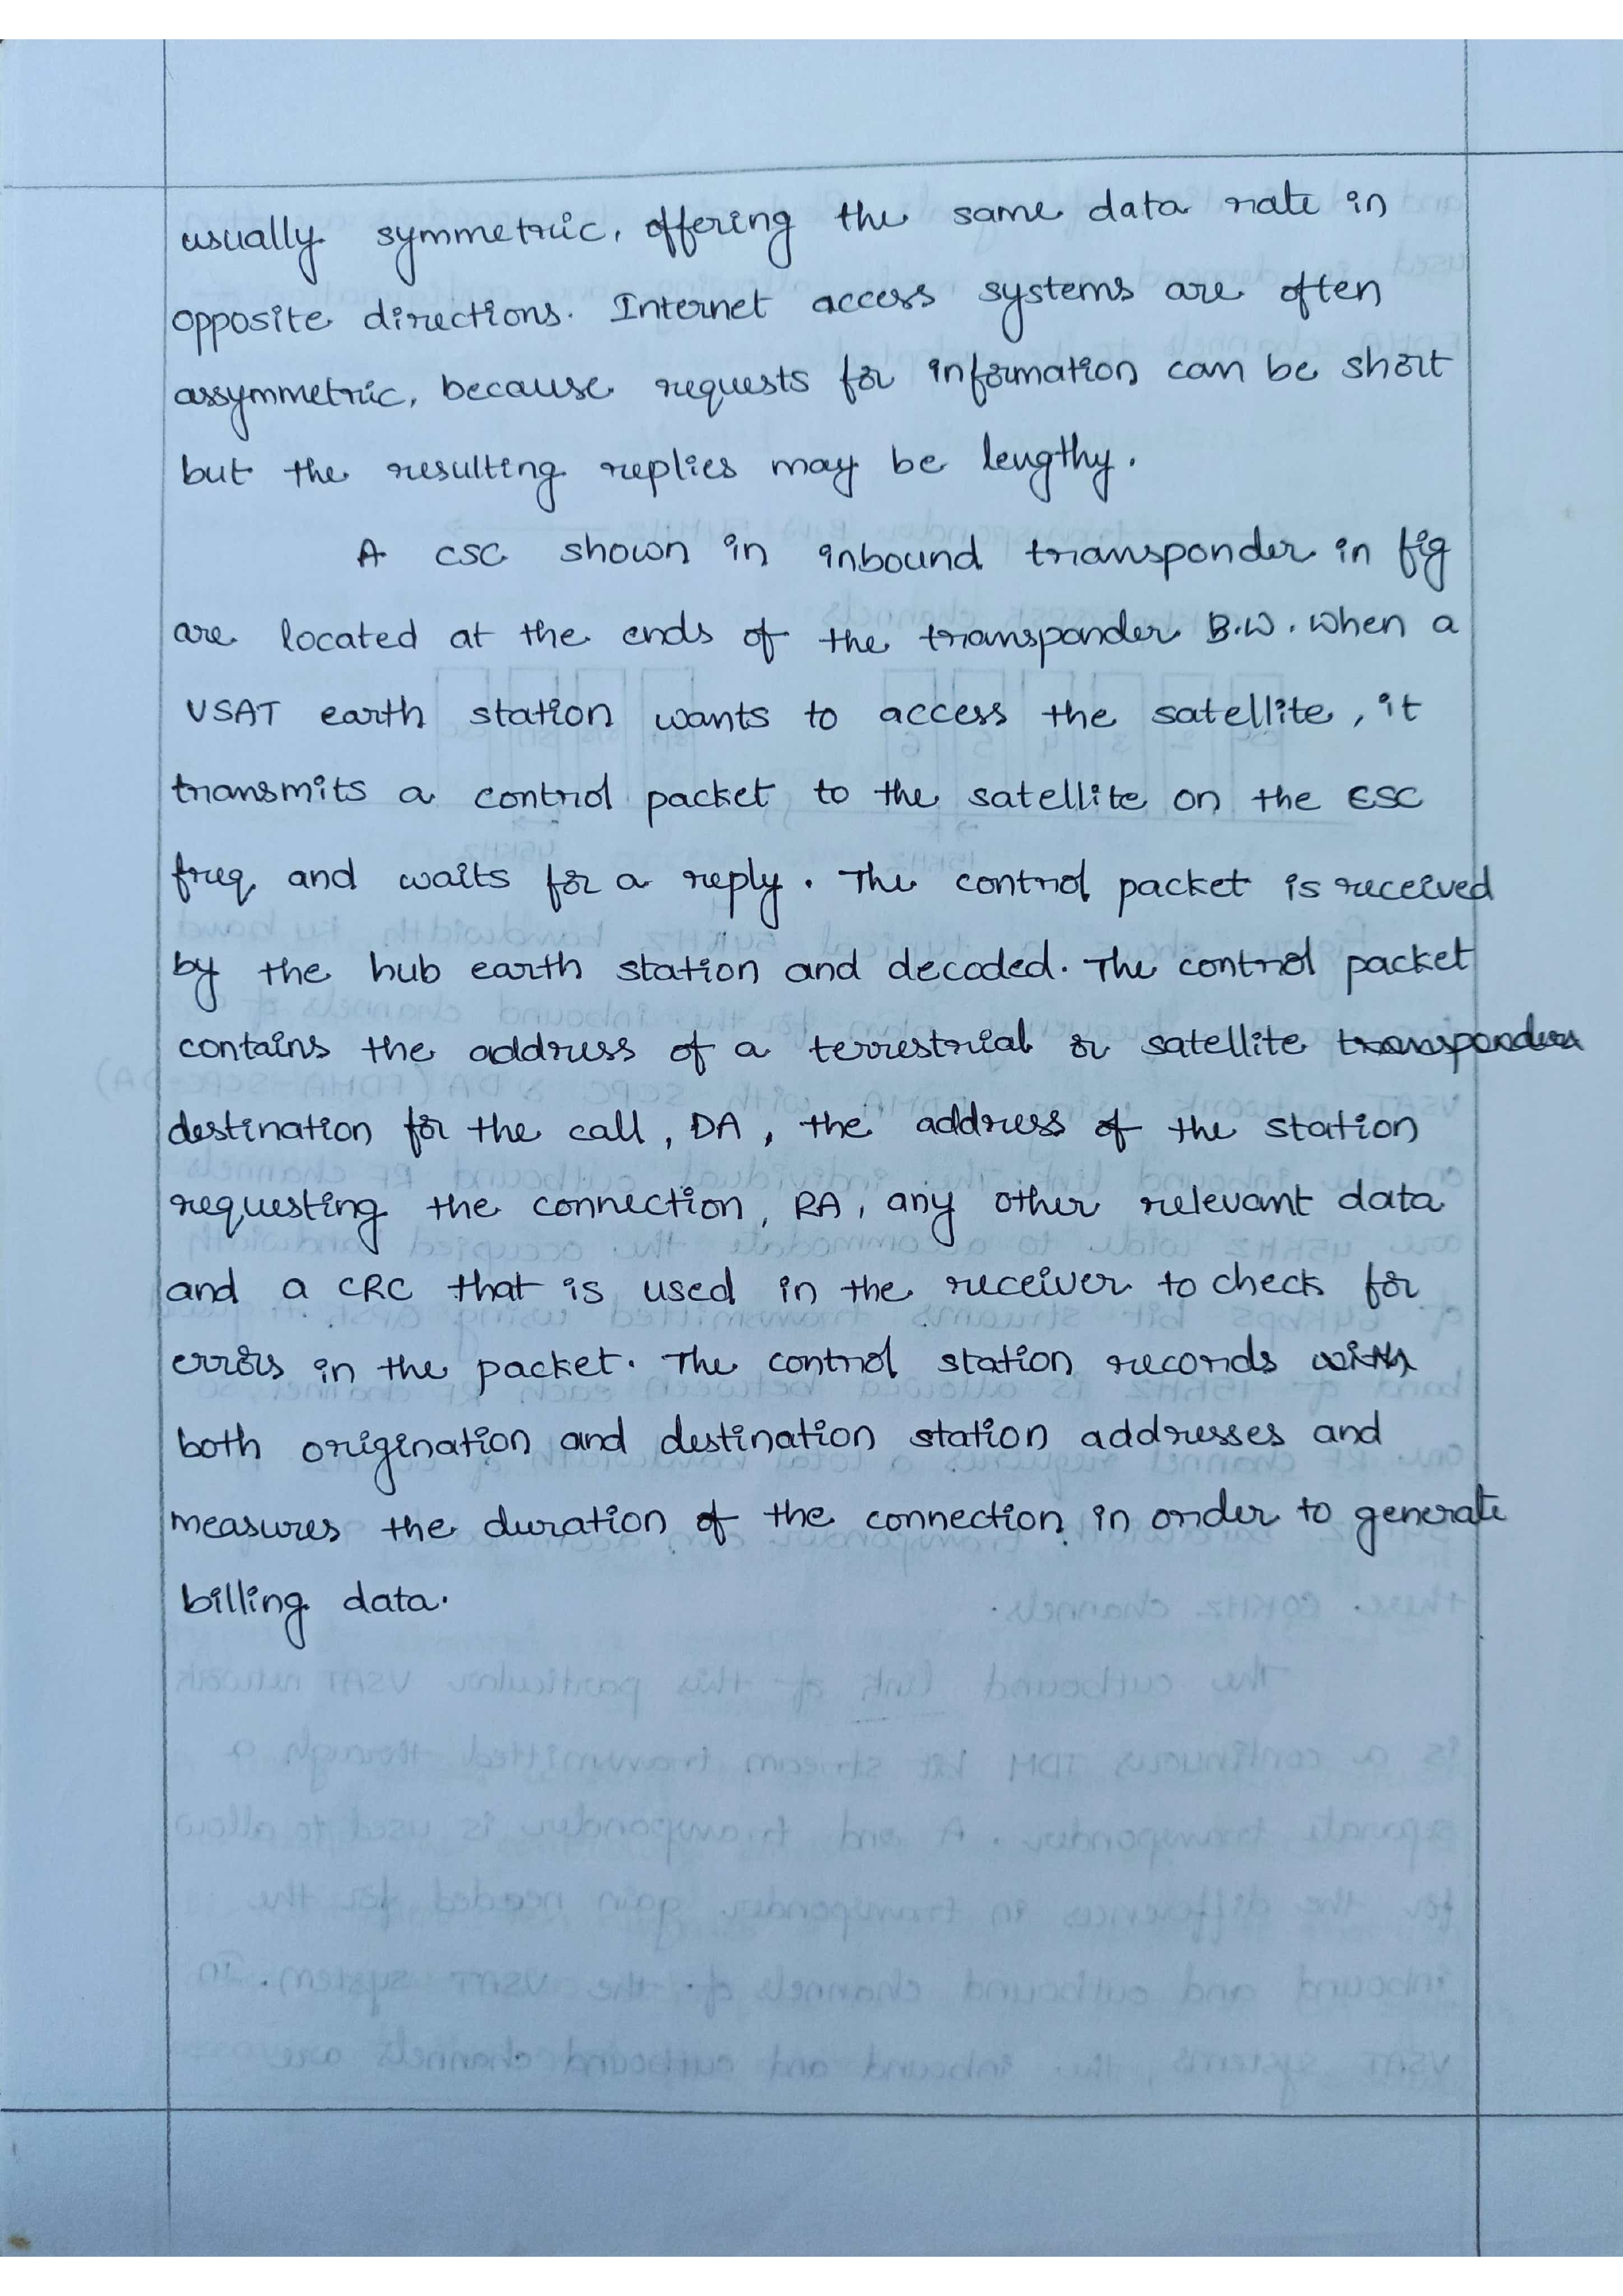 usually symmetric, offering the same data rate in
opposite directions. Internet access systems are often
assymmetric, because requests for information can be short
but the resulting replies may be lengthy.
A CSC shown in inbound transponder in fig
are located at the ends of the transponder B.W. when a
VSAT earth station wants to access the satellite, it
transmits a control packet to the satellite on the CSC
freq and waits for a reply. The control packet is received
by the hub earth station and decoded. The control packet
contains the address of a terrestrial or satellite transponder
destination for the call, DA, the address of the station
requesting the connection, RA, any other relevant data
and a CRC that is used in the receiver to check for
errors in the packet. The control station records with
both origination and destination station addresses and
measures the duration of the connection in order to generate
billing data.